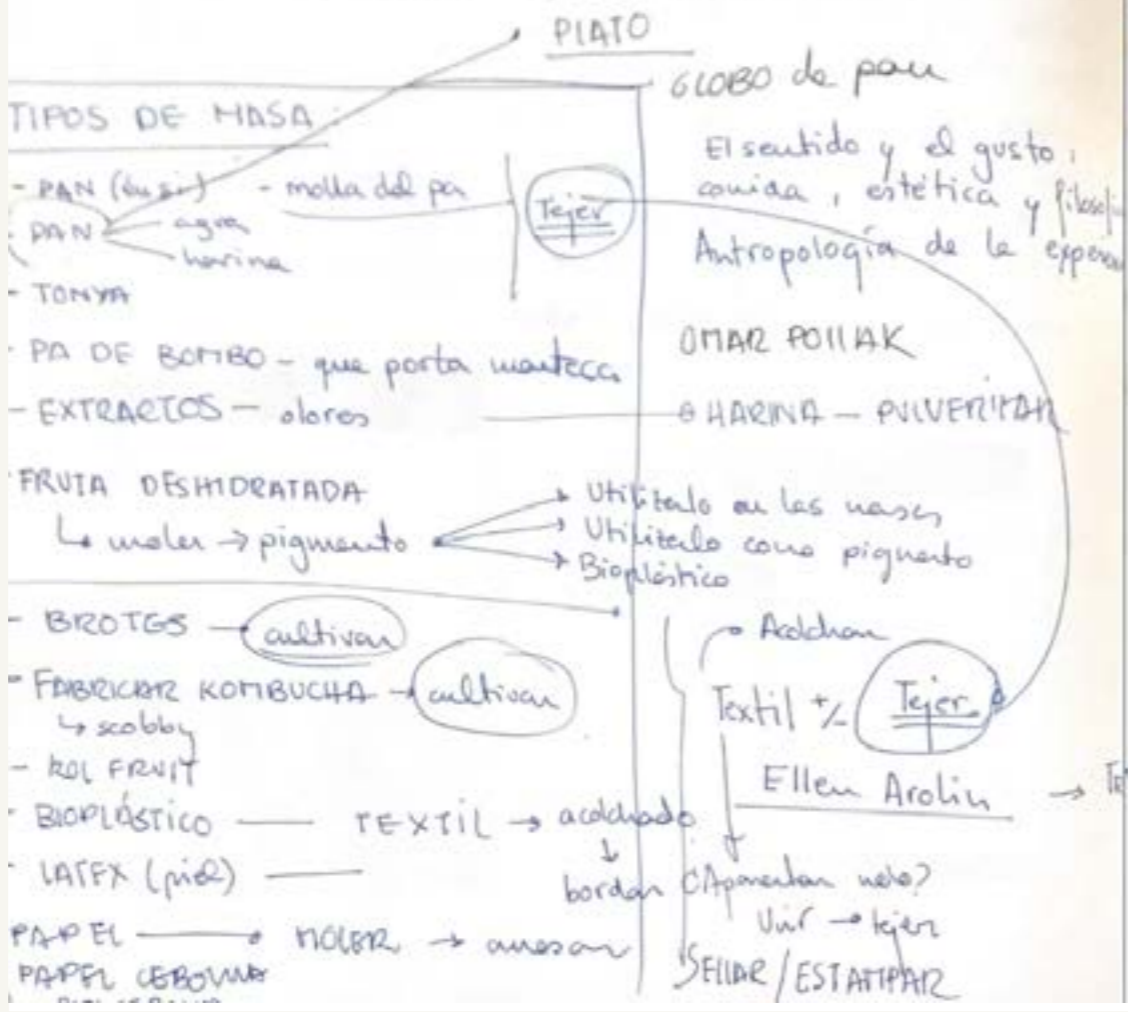 PLATO
GLOBO de pan
TIPOS DE MASA:
- PAN (en sí) - molla del pa
Tejer
- PAN
agua
harina
- TONYA
- PA DE BOMBO - que porta manteca
- EXTRACTOS - olores
FRUTA DESHIDRATADA
↳ moler → pigmento
→ Utilitzalo en las
→ Utilitzalo como pigmento
→ Bioplástico
- BROTES - cultivar
- FABRICAR KOMBUCHA → cultivar
↳ scobby
- FRUIT
- BIOPLÁSTICO — TEXTIL → acolchado
↓
bordar
- LATEX (piel) —
PAPEL → MOLER → amasar
PAPEL CEBOLLA
El sentido y el gusto:
comida, estética y
Antropología de la
OMAR POLLAK
HARINA — PULVERITZAR
Acolchar
Textil +/- Tejer
Ellen Arolin →
¿Aparentan
Unir → tejer
SELLAR / ESTAMPAR